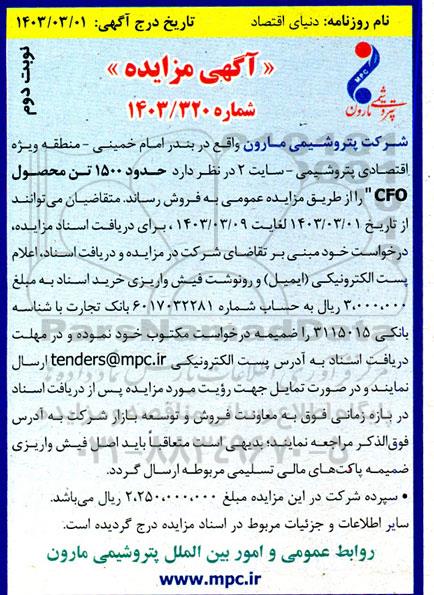 نام روزنامه: دنیای اقتصاد    تاریخ درج آگهی: ۱۴۰۳/۰۳/۰۱
نوبت دوم
MPC
پتروشیمی مارون
« آگهی مزایده »
شماره ۱۴۰۳/۳۲۰
شرکت پتروشیمی مارون واقع در بندر امام خمینی - منطقه ویژه
اقتصادی پتروشیمی - سایت ۲ در نظر دارد حدود ۱۵۰۰ تن محصول
CFO" را از طریق مزایده عمومی به فروش رساند. متقاضیان می‌توانند
از تاریخ ۱۴۰۳/۰۳/۰۱ لغایت ۱۴۰۳/۰۳/۰۹ ، برای دریافت اسناد مزایده،
درخواست خود مبنی بر تقاضای شرکت در مزایده و دریافت اسناد، اعلام
پست الکترونیکی (ایمیل) و رونوشت فیش واریزی خرید اسناد به مبلغ
۳،۰۰۰،۰۰۰ ریال به حساب شماره ۶۰۱۷۰۳۲۲۸۱ بانک تجارت با شناسه
بانکی ۳۱۱۵۰۱۵ را ضمیمه درخواست مکتوب خود نموده و در مهلت
دریافت اسناد به آدرس پست الکترونیکی tenders@mpc.ir ارسال
نمایند و در صورت تمایل جهت رؤیت مورد مزایده پس از دریافت اسناد
در بازه زمانی فوق به معاونت فروش و توسعه بازار شرکت به آدرس
فوق‌الذکر مراجعه نمایند؛ بدیهی است متعاقباً باید اصل فیش واریزی
ضمیمه پاکت‌های مالی تسلیمی مربوطه ارسال گردد.
• سپرده شرکت در این مزایده مبلغ ۲،۲۵۰،۰۰۰،۰۰۰ ریال می‌باشد.
سایر اطلاعات و جزئیات مربوط در اسناد مزایده درج گردیده است.
روابط عمومی و امور بین الملل پتروشیمی مارون
www.mpc.ir